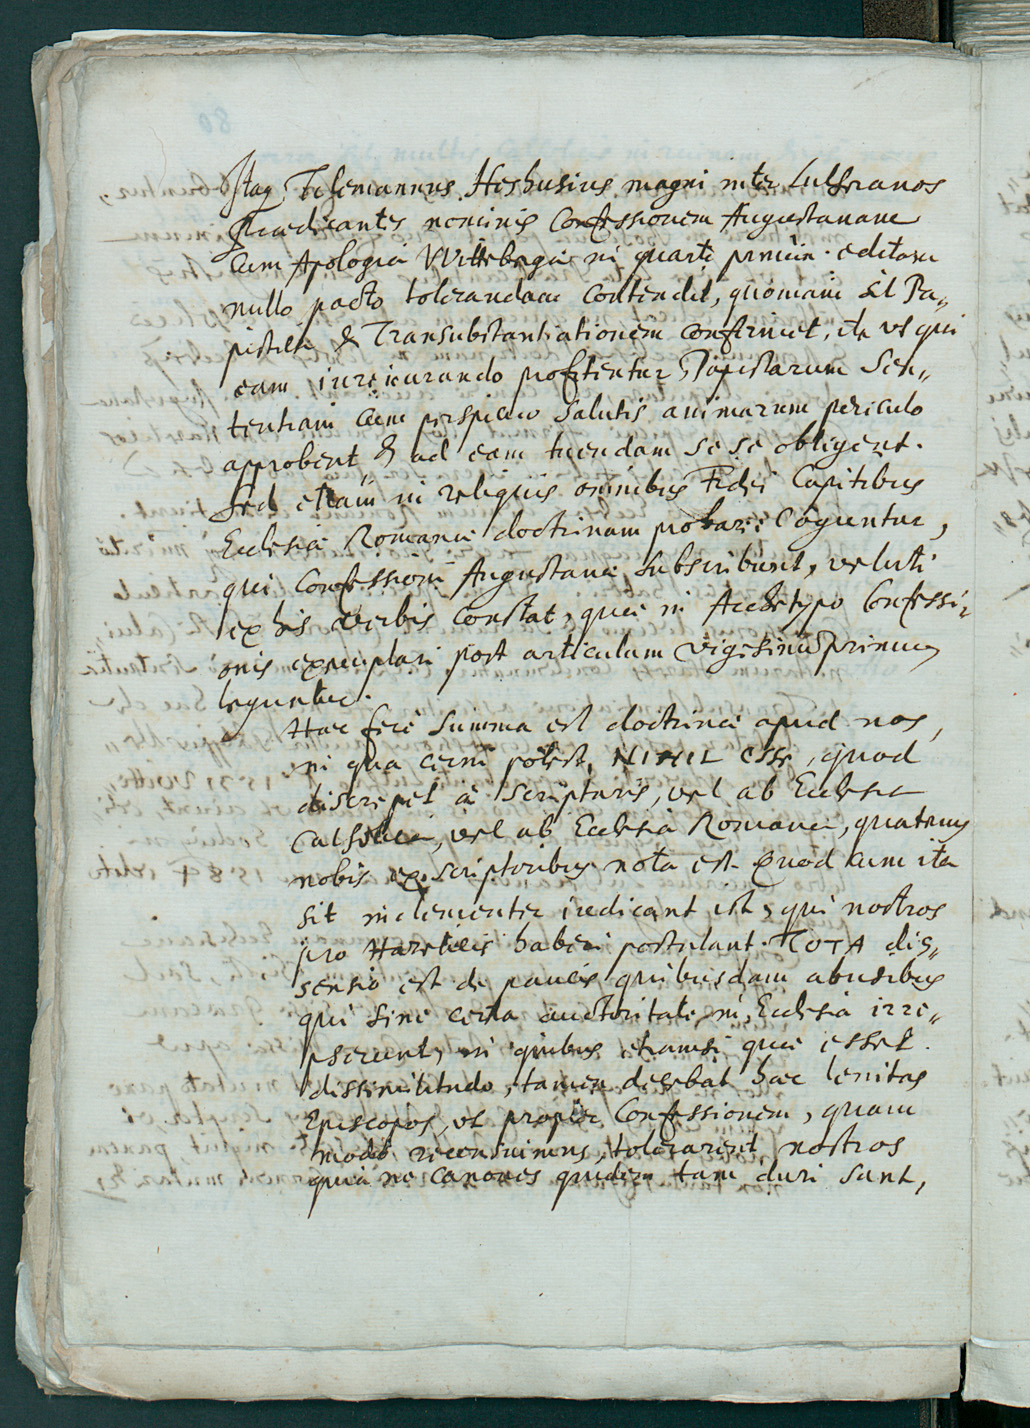 Itaq Tilemannus Heshusius magni inter Lutheranos
Praedicantes nominis Confessionem Augustanam
Cum Apologia VVittebergae in quarto primùm editam
nullo pacto tolerandam contendit, quoniam sit Pa„
pistica & Transubstantiationem confirmet, ita ut qui
eam iureiurando profitentur, Papistarum Sen„
tentiam cum perspicuo salutis animarum periculo
approbent, & ad eam tuendam sese obligent.
Sed etiam in reliquis omnibus Fidei Capitibus
Ecclesiae Romanae doctrinam probare coguntur,
qui Confessioni Augustanae subscribunt, veluti
ex his verbis constat, quae in Archetypo Confessi„
onis exemplari post articulum vigesimum primum
leguntur.
Haec ferè summa est doctrinae apud nos,
in qua cerni potest, NIHIL esse, quod
discrepet à scripturis, vel ab Ecclesia
Catholica, vel ab Ecclesia Romana, quatenus
nobis ex scriptoribus nota est. Quod cum ita
sit inclementer iudicant isti, qui nostros
pro Haereticis haberi postulant. TOTA dis„
sensio est de paucis quibusdam abusibus
qui sine certa auctoritate in Ecclesia irre„
pserunt, in quibus etiamsi qua esset
dissimilitudo, tamen decebat haec lenitas
Episcopos, ut propter Confessionem, quam
modò recensuimus, tolerarent nostros
quia ne Canones quidem tam duri sunt,